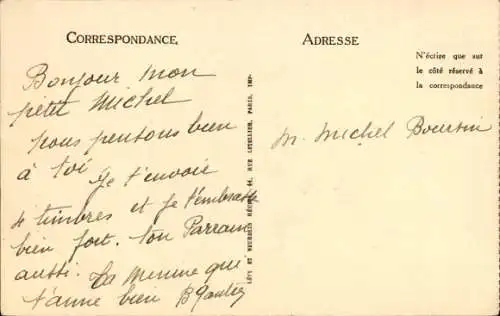 CORRESPONDANCE.
Bonjour mon
petit Michel
nous pensons bien
à toi Je t'envoie
4 timbres et je t'embrasse
bien fort. ton Parrain
aussi. ta Mémine que
t'aime bien B Gautier
LÉVY ET NEURDEIN RÉUNIS, 44, RUE LETELLIER, PARIS, IMP.
ADRESSE
N'écrire que sur
le côté réservé à
la correspondance
M. Michel Boursin